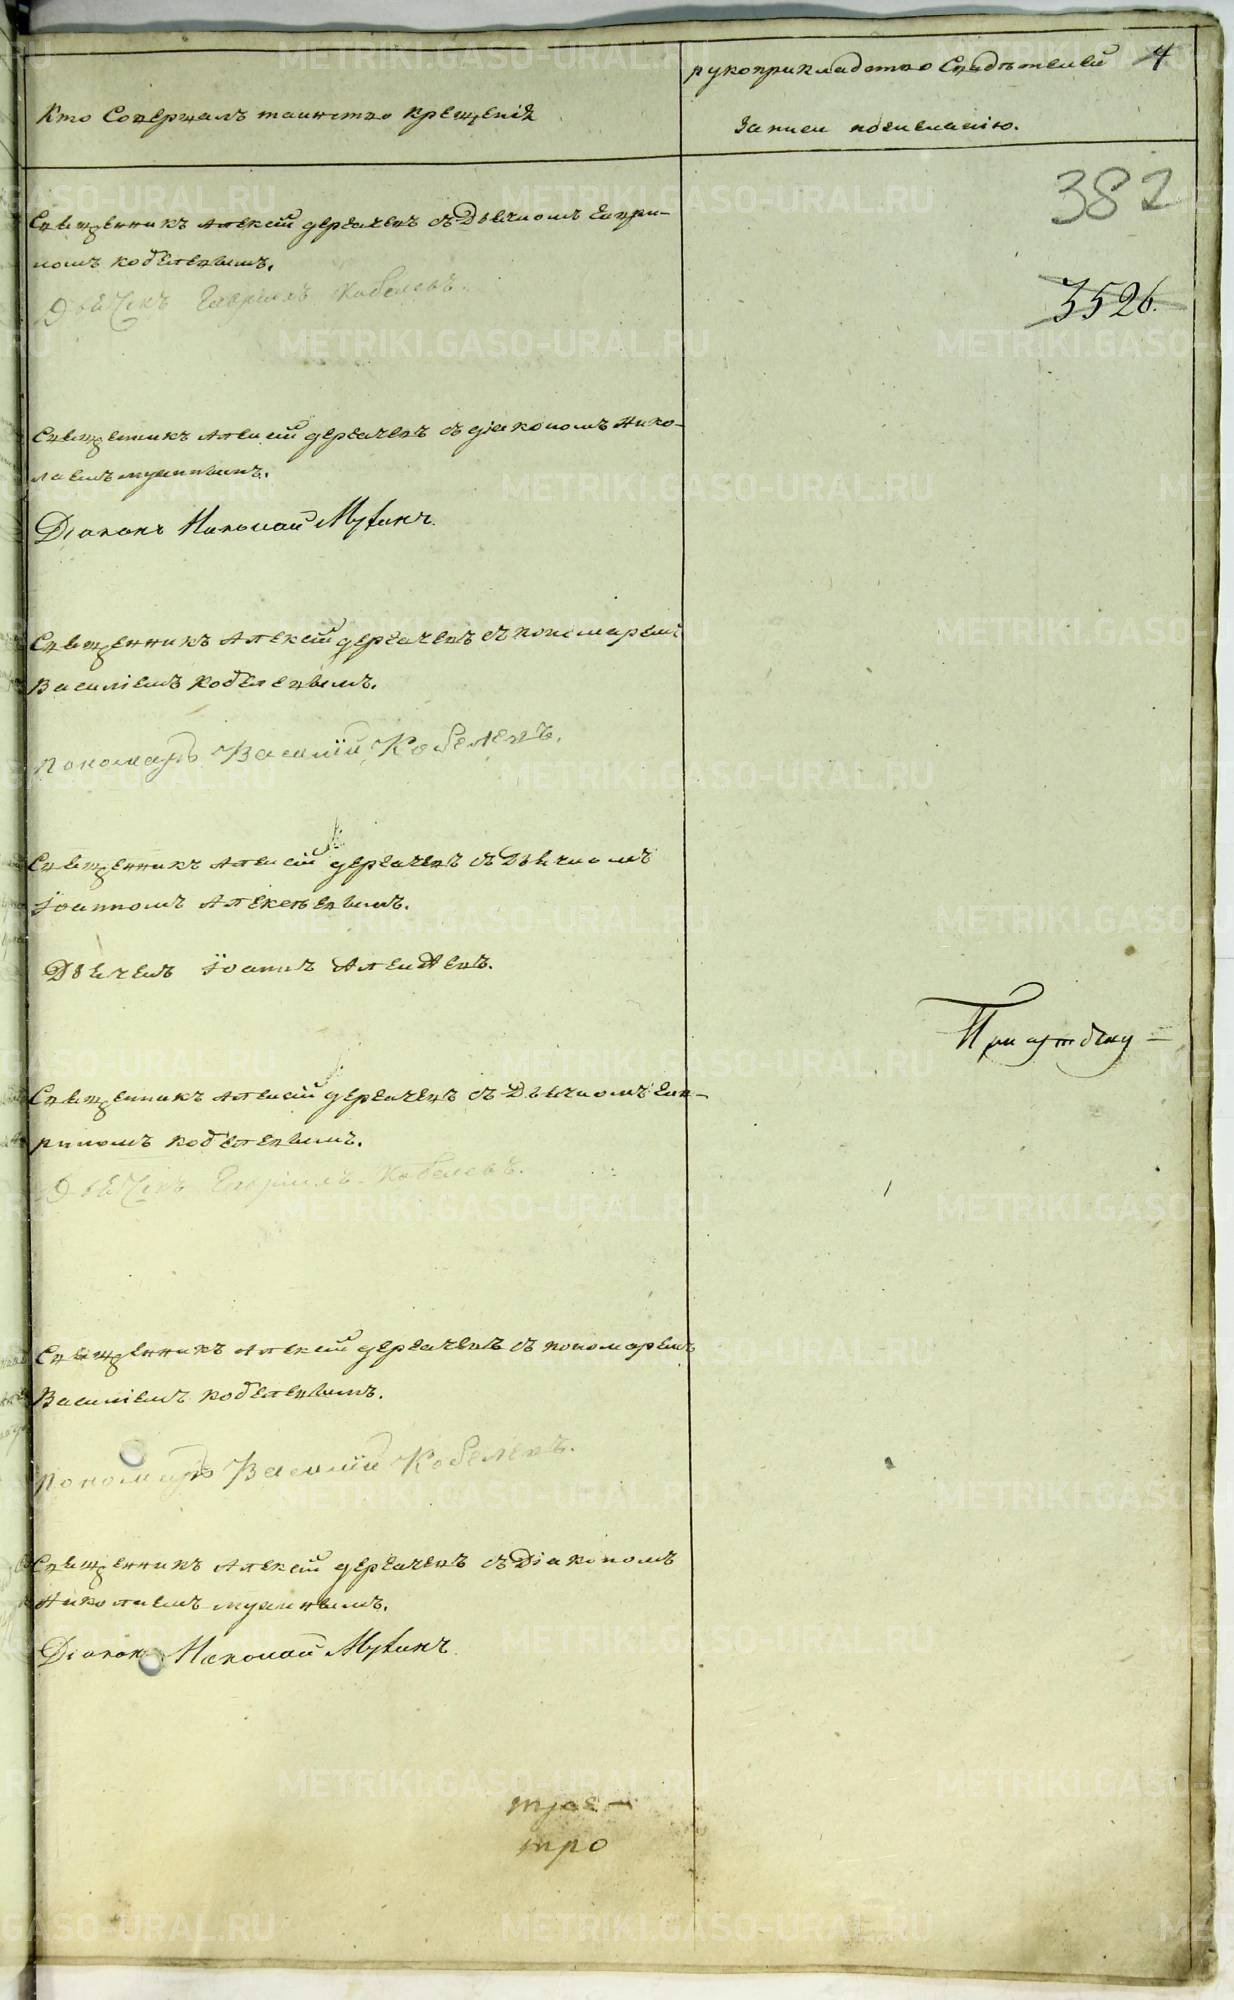 4
Кто Совершалъ таинство Крещенія
рукоприкладство Свидѣтелей
записи по желанію.
382
3526.
Священникъ Алексій Дергачевъ съ Дьячкомъ Гаври-
ломъ Кобелевымъ.
Дьячекъ Гавріилъ Кобелевъ.
Священникъ Алексій Дергачевъ съ діакономъ Нико-
лаемъ
Діаконъ Николай
Священникъ Алексій Дергачевъ съ пономаремъ
Василіемъ Кобелевымъ.
Пономарь Василій Кобелевъ.
Священникъ Алексій Дергачевъ съ Дьячкомъ
Іоанномъ Алексѣевымъ.
Дьячекъ Іоаннъ Алексѣевъ.
Священникъ Алексій Дергачевъ съ Дьячкомъ Гав-
риломъ Кобелевымъ.
Дьячекъ Гавріилъ Кобелевъ.
Священникъ Алексій Дергачевъ съ пономаремъ
Василіемъ Кобелевымъ.
Пономарь Василій Кобелевъ.
Священникъ Алексій Дергачевъ съ Діакономъ
Николаемъ
Діаконъ Николай
METRIKI.GASO-URAL.RU